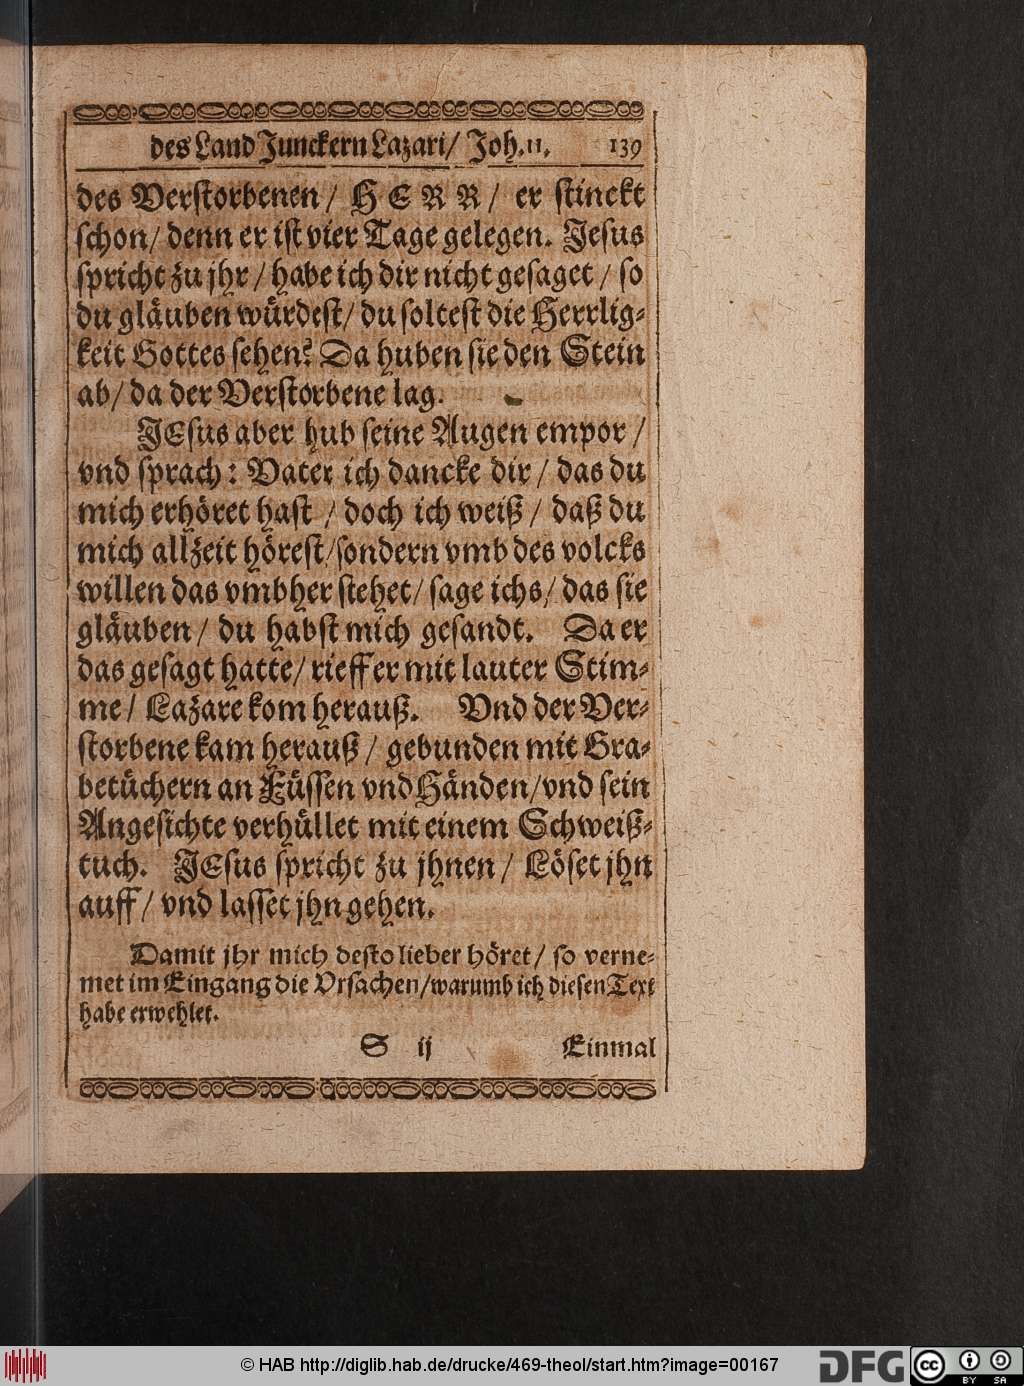 des Land Junckern Lazari/ Joh. 11. 139
des Verstorbenen/ HERR/ er stinckt
schon/ denn er ist vier Tage gelegen. Jesus
spricht zu jhr/ habe ich dir nicht gesaget/ so
du gläuben würdest/ du soltest die Herrlig-
keit Gottes sehen? Da huben sie den Stein
ab/ da der Verstorbene lag.
JEsus aber hub seine Augen empor/
vnd sprach: Vater ich dancke dir/ das du
mich erhöret hast/ doch ich weiß/ daß du
mich allzeit hörest/sondern vmb des volcks
willen das vmbher stehet/ sage ichs/ das sie
gläuben/ du habst mich gesandt. Da er
das gesagt hatte/ rieff er mit lauter Stim-
me/ Lazare kom herauß. Vnd der Ver-
storbene kam herauß/ gebunden mit Gra-
betüchern an Füssen vnd Händen/vnd sein
Angesichte verhüllet mit einem Schweiß-
tuch. JEsus spricht zu jhnen/ Löset jhn
auff/ vnd lasset jhn gehen.
Damit jhr mich desto lieber höret/ so verne-
met im Eingang die Vrsachen/warumb ich diesen Text
habe erwehlet.
S ij Einmal
© HAB http://diglib.hab.de/drucke/469-theol/start.htm?image=00167
DFG cc BY SA